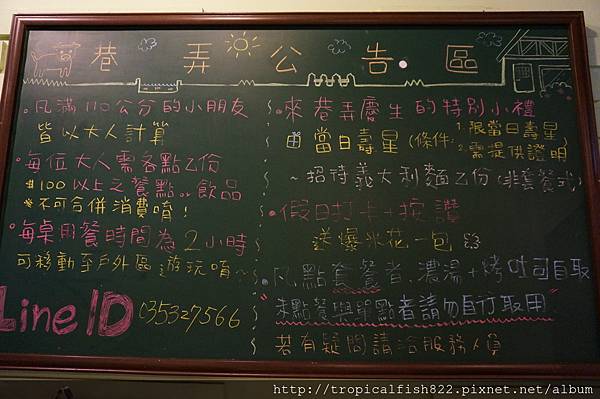 巷弄公告區
•凡滿110公分的小朋友
皆以大人計算
•每位大人需各點乙份
$100以上之餐點or飲品
*不可合併消費唷!
•每桌用餐時間為2小時
可移動至戶外區遊玩唷~
Line ID 035327566
•來巷弄慶生的特別小禮
當日壽星(條件:1.限當日壽星
2.需提供證明
~招待義大利麵乙份(非套餐式)
•假日打卡+按讚
送爆米花一包
•凡點套餐者,濃湯+烤吐司自取
"未點餐與單點者請勿自行取用"
若有疑問請洽服務人員
http://tropicalfish822.pixnet.net/album